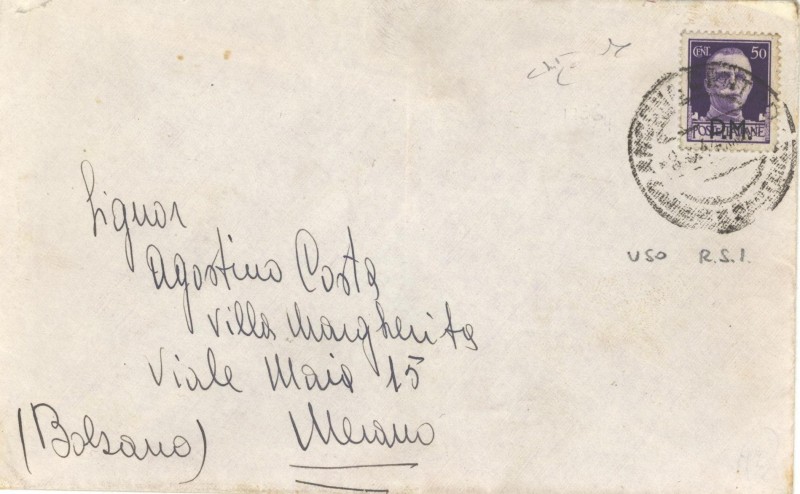 CENT. 50
P.M.
POSTE ITALIANE
USO R.S.I.
Signor
Agostino Costa
Villa Margherita
Viale Maia 15
Merano
(Bolzano)